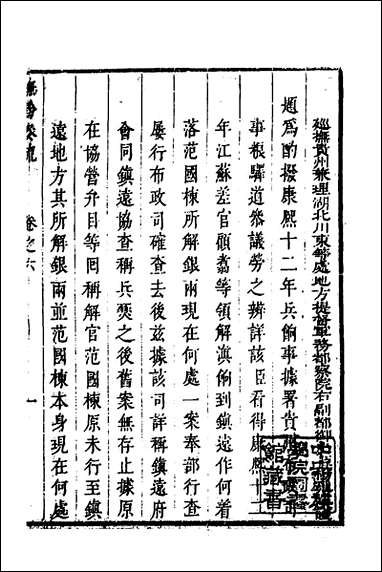 經撫貴州兼理湖北川東等處地方提督軍務都察院右副都御史
題爲酌撥康熙十二年兵餉事據署貴州布政
事糧驛道叅議勞之辨詳該臣看得康熙十二
年江蘇差官顧翥等領解滇例到鎮遠作何着
落范國棟所解銀兩現在何處一案奉部行查
屢行布政司確查去後兹據該司詳稱鎮遠府
會同鎮遠協查稱兵燹之後舊案無存止據原
在協營弁目等囘稱解官范國棟原未行至鎮
遠地方其所解銀兩並范國棟本身現在何處
撫黔奏疏 卷之六 一
館藏書